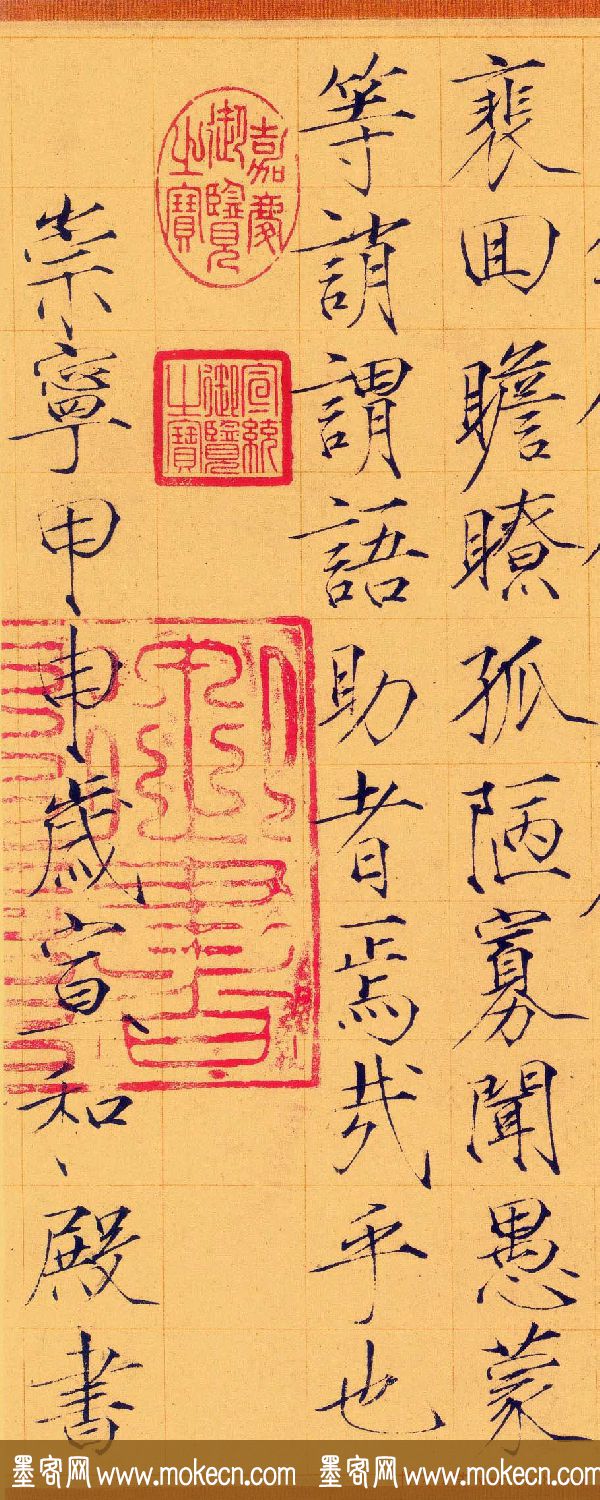 裵回瞻瞭孤陋寡聞愚蒙
等誚謂語助者焉哉乎也
嘉慶御覽之寶
宣統御覽之寶
崇寧甲申歲宣和殿書
墨客网 www.mokecn.com 墨客网 www.mokecn.com